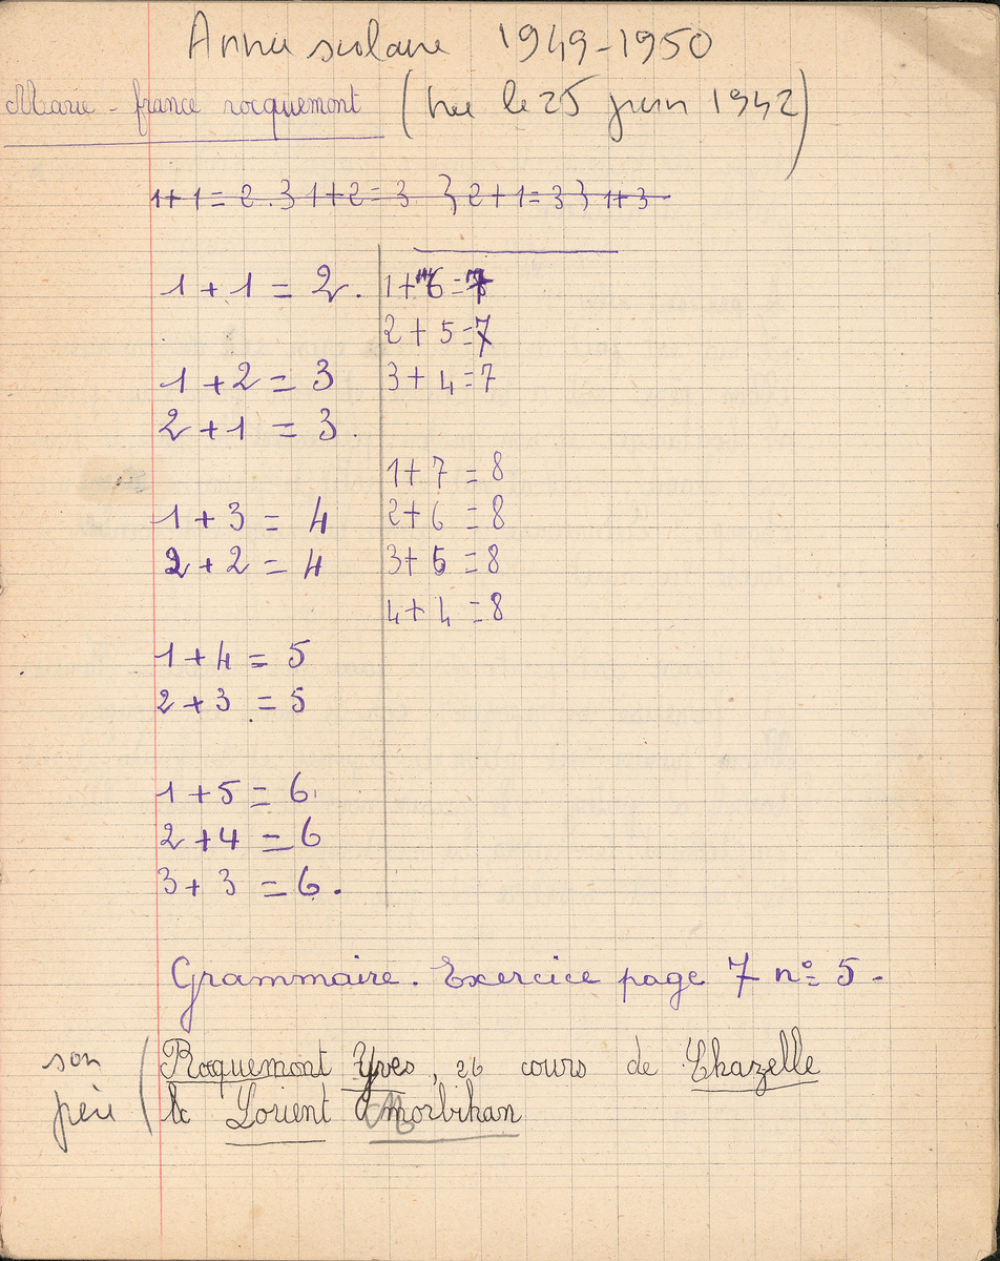 Année scolaire 1949-1950
Marie-france rocquemont (née le 25 juin 1942)
1+1=2.} 1+2=3 } 2+1=3 } 1+3
1+1=2.
1+2=3
2+1=3.
1+3=4
2+2=4
1+4=5
2+3=5
1+5=6.
2+4=6
3+3=6.
1+6=7
2+5=7
3+4=7
1+7=8
2+6=8
3+5=8
4+4=8
Grammaire. Exercice page 7 n° 5.
son père ( Rocquemont Yves, 26 cours de Chazelle
à Lorient Morbihan